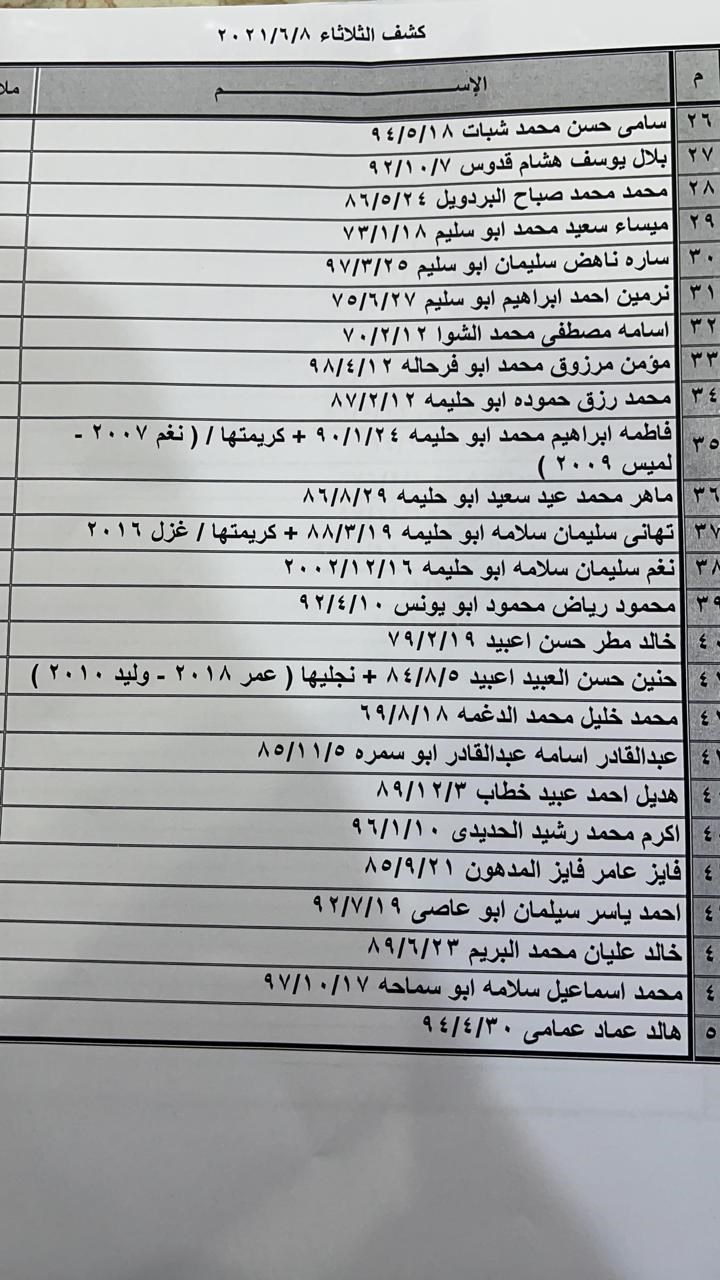 كشف الثلاثاء ٢٠٢١/٦/٨
م الإســـــــــــــم ملا
٢٦ سامى حسن محمد شبات ٩٤/٥/١٨
٢٧ بلال يوسف هشام قدوس ٩٢/١٠/٧
٢٨ محمد محمد صباح البردويل ٨٦/٥/٢٤
٢٩ ميساء سعيد محمد ابو سليم ٧٣/١/١٨
٣٠ ساره ناهض سليمان ابو سليم ٩٧/٣/٢٥
٣١ نرمين احمد ابراهيم ابو سليم ٧٥/٦/٢٧
٣٢ اسامه مصطفى محمد الشوا ٧٠/٢/١٢
٣٣ مؤمن مرزوق محمد ابو فرحاله ٩٨/٤/١٢
٣٤ محمد رزق حموده ابو حليمه ٨٧/٢/١٢
٣٥ فاطمه ابراهيم محمد ابو حليمه ٩٠/١/٢٤ + كريمتها / ( نغم ٢٠٠٧ -
لميس ٢٠٠٩ )
٣٦ ماهر محمد عيد سعيد ابو حليمه ٨٦/٨/٢٩
٣٧ تهانى سليمان سلامه ابو حليمه ٨٨/٣/١٩ + كريمتها / غزل ٢٠١٦
٣٨ نغم سليمان سلامه ابو حليمه ٢٠٠٢/١٢/١٦
٣٩ محمود رياض محمود ابو يونس ٩٢/٤/١٠
٤ خالد مطر حسن اعبيد ٧٩/٢/١٩
٤ حنين حسن العبيد اعبيد ٨٤/٨/٥ + نجليها ( عمر ٢٠١٨ - وليد ٢٠١٠ )
٤ محمد خليل محمد الدغمه ٦٩/٨/١٨
٤ عبدالقادر اسامه عبدالقادر ابو سمره ٨٥/١١/٥
٤ هديل احمد عبيد خطاب ٨٩/١٢/٣
٤ اكرم محمد رشيد الحديدى ٩٦/١/١٠
٤ فايز عامر فايز المدهون ٨٥/٩/٢١
٤ احمد ياسر سيلمان ابو عاصى ٩٢/٧/١٩
٤ خالد عليان محمد البريم ٨٩/٦/٢٣
٤ محمد اسماعيل سلامه ابو سماحه ٩٧/١٠/١٧
٥ هالد عماد عمامى ٩٤/٤/٣٠